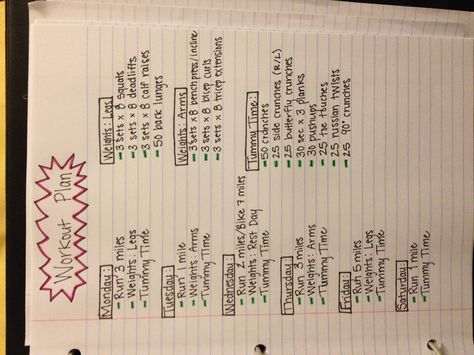 Workout Plan
Monday:
- Run 3 miles
- Weights: Legs
- Tummy Time
Tuesday:
- Run 1 mile
- Weights: Arms
- Tummy Time
Wednesday:
- Run 2 miles/Bike 7 miles
- Weights: Rest Day
- Tummy Time
Thursday:
- Run 3 miles
- Weights: Arms
- Tummy Time
Friday:
- Run 5 miles
- Weights: Legs
- Tummy Time
Saturday:
- Run 1 mile
- Tummy Time
Weights: Legs
- 3 sets x 8 squats
- 3 sets x 8 deadlifts
- 3 sets x 8 calf raises
- 50 back lunges
Weights: Arms
- 3 sets x 8 bench press/incline
- 3 sets x 8 bicep curls
- 3 sets x 8 tricep extensions
Tummy Time:
- 50 crunches
- 25 side crunches (R/L)
- 25 butterfly crunches
- 30 sec x 3 planks
- 30 pushups
- 25 toe touches
- 25 russian twists
- 25 90° crunches